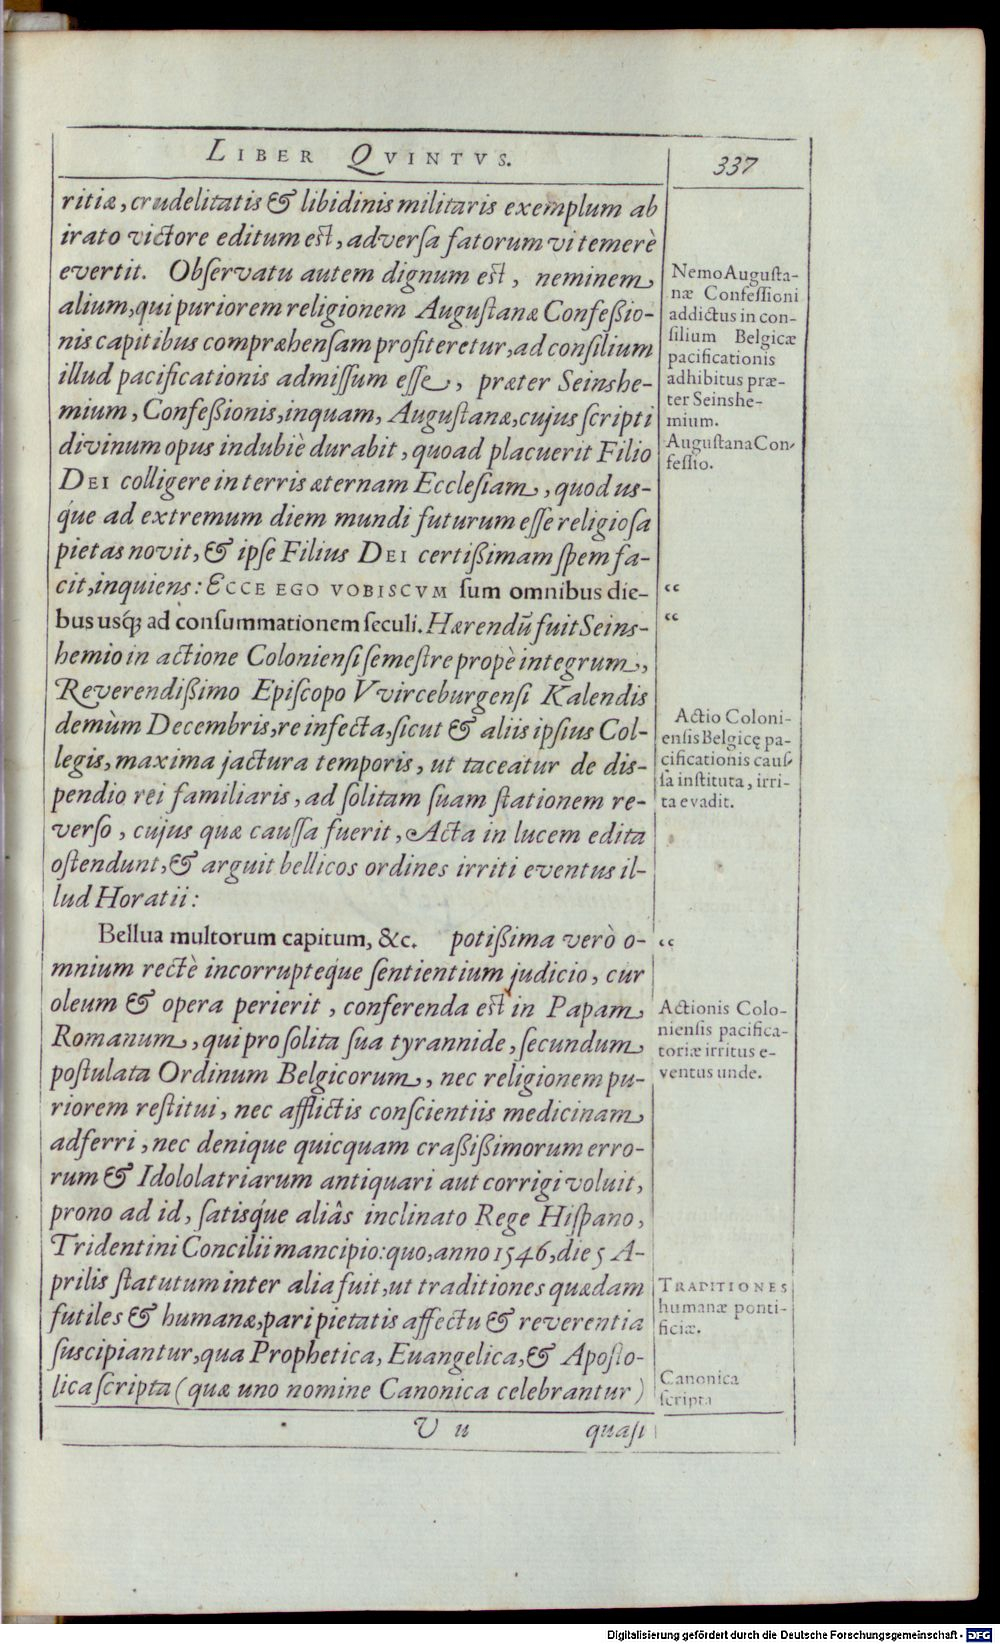 LIBER QVINTVS.
337
ritiæ, crudelitatis & libidinis militaris exemplum ab
irato victore editum est, adversa fatorum vi temerè
evertit. Observatu autem dignum est, neminem
alium, qui puriorem religionem Augustanæ Confeßio-
nis capitibus compræhensam profiteretur, ad consilium
illud pacificationis admissum esse, præter Seinshe-
mium, Confeßionis, inquam, Augustanæ, cujus scripti
divinum opus indubiè durabit, quoad placuerit Filio
DEI colligere in terris æternam Ecclesiam, quod us-
q́ue ad extremum diem mundi futurum esse religiosa
pietas novit, & ipse Filius DEI certißimam spem fa-
cit, inquiens: ECCE EGO VOBISCVM sum omnibus die-
bus usq́; ad consummationem seculi. Hærendũ fuit Seins-
hemio in actione Coloniensi semestre propè integrum,
Reverendißimo Episcopo Vvirceburgensi Kalendis
demùm Decembris, re infecta, sicut & aliis ipsius Col-
legis, maxima jactura temporis, ut taceatur de dis-
pendio rei familiaris, ad solitam suam stationem re-
verso, cujus quæ caussa fuerit, Acta in lucem edita
ostendunt, & arguit bellicos ordines irriti eventus il-
lud Horatii:
Bellua multorum capitum, &c. potißima verò o-
mnium rectè incorrupteq́ue sentientium judicio, cur
oleum & opera perierit, conferenda est in Papam
Romanum, qui pro solita sua tyrannide, secundum
postulata Ordinum Belgicorum, nec religionem pu-
riorem restitui, nec afflictis conscientiis medicinam
adferri, nec denique quicquam craßißimorum erro-
rum & Idololatriarum antiquari aut corrigi voluit,
prono ad id, satisq́ue aliâs inclinato Rege Hispano,
Tridentini Concilii mancipio: quo, anno 1546, die 5 A-
prilis statutum inter alia fuit, ut traditiones quædam
futiles & humanæ, pari pietatis affectu & reverentia
suscipiantur, qua Prophetica, Euangelica, & Aposto-
lica scripta (quæ uno nomine Canonica celebrantur)
V u
quasi
Nemo Augusta-
næ Confessioni
addictus in con-
silium Belgicæ
pacificationis
adhibitus præ-
ter Seinshe-
mium.
Augustana Con-
fessio.
“
“
Actio Coloni-
ensis Belgicę pa-
cificationis caus-
sa instituta, irri-
ta evadit.
“
Actionis Colo-
niensis pacifica-
toriæ irritus e-
ventus unde.
TRADITIONES
humanæ ponti-
ficiæ.
Canonica
scripta
Digitalisierung gefördert durch die Deutsche Forschungsgemeinschaft - DFG